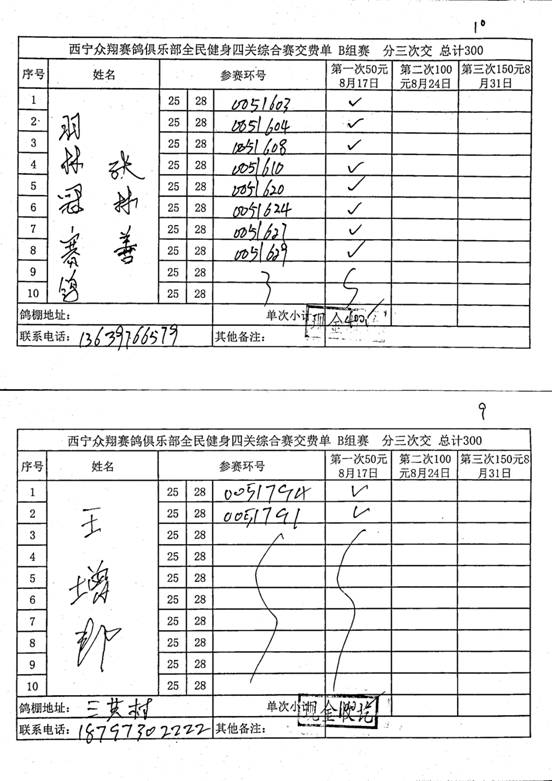 10
西宁众翔赛鸽俱乐部全民健身四关综合赛交费单 B组赛 分三次交 总计300
序号 姓名 参赛环号 第一次50元8月17日 第二次100元8月24日 第三次150元8月31日
羽林冠赛鸽
张林善
1 25 28 0051603 ✓
2 25 28 0051604 ✓
3 25 28 0051608 ✓
4 25 28 0051610 ✓
5 25 28 0051620 ✓
6 25 28 0051624 ✓
7 25 28 0051627 ✓
8 25 28 0051629 ✓
9 25 28
10 25 28
鸽棚地址: 单次小计 现金400
联系电话: 13639766579 其他备注:
9
西宁众翔赛鸽俱乐部全民健身四关综合赛交费单 B组赛 分三次交 总计300
序号 姓名 参赛环号 第一次50元8月17日 第二次100元8月24日 第三次150元8月31日
王增
1 25 28 0051794 ✓
2 25 28 0051791 ✓
3 25 28
4 25 28
5 25 28
6 25 28
7 25 28
8 25 28
9 25 28
10 25 28
鸽棚地址: 三其村 单次小计 现金收讫
联系电话: 18797302222 其他备注: